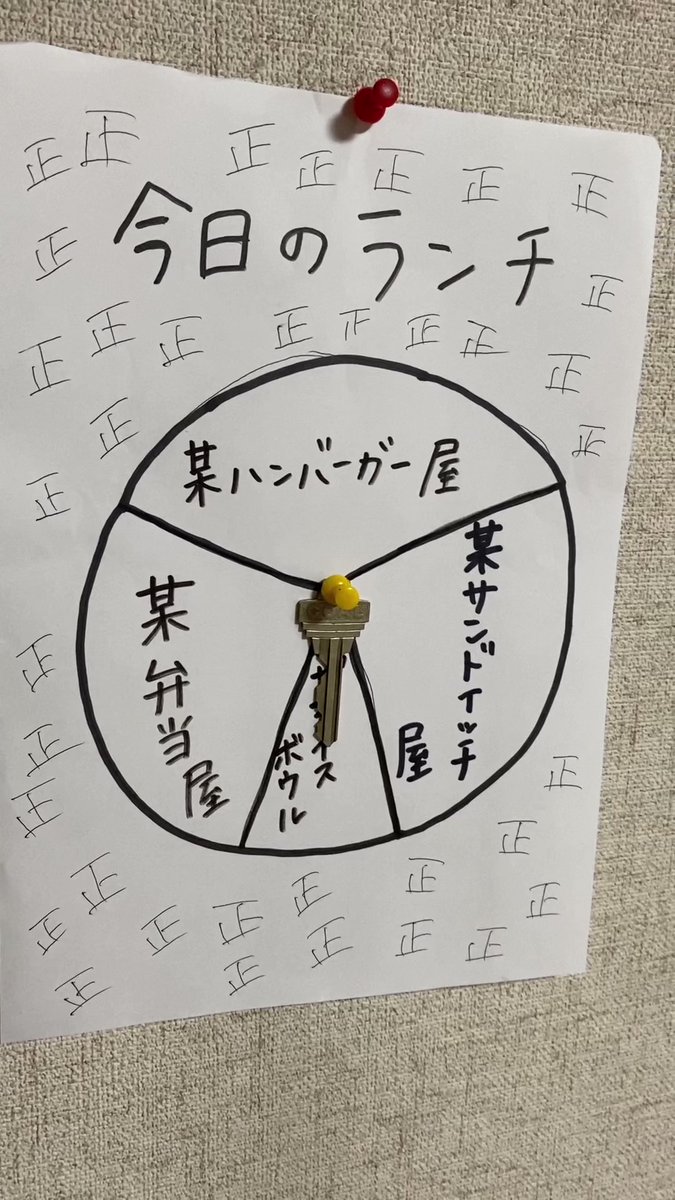 正 正 正 正 正 正 正
今日のランチ
正 正
正 正 正 正 正 正 正 正
正 正
正
某ハンバーガー屋
某サンドイッチ
屋
某弁当屋
ボウル
正
正
正 正
正
正 正 正 正
正 正 正 正 正 正
正 正